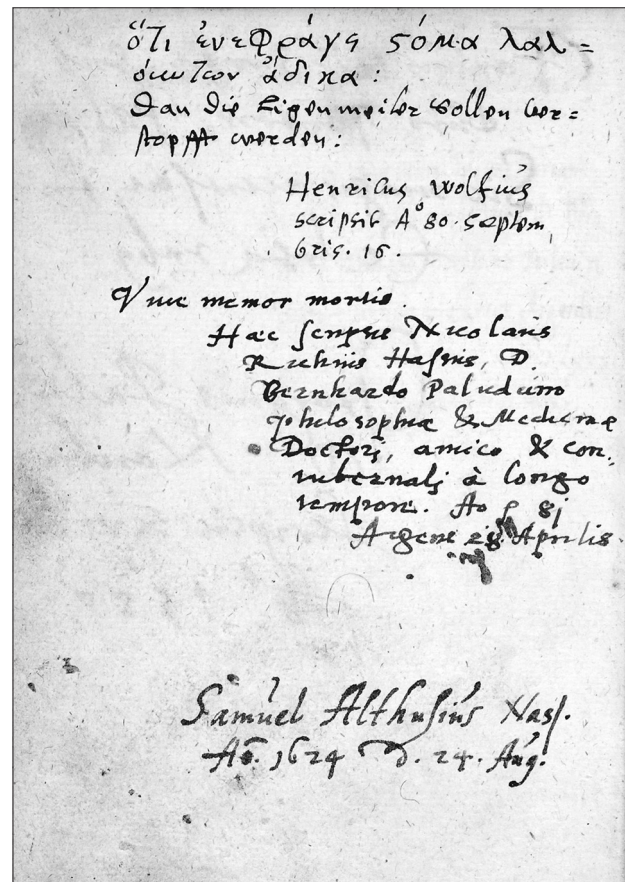 ὅτι ἐνεφράγε ϛόμα λαλ=
όωντων ἄδικα:
Dan die Ligenmeiler sollen ver=
stopfft werden:
Henricus Wolfius
scripsit Aº 80. Septem
bris. 16.
Viue memor mortis.
Haec scripsit Nicolaus
Hassus, D.
Bernhardo Paludano
philosophiae & Medicinae
Doctori, amico & con,
tubernalj à longo
tempore. Ao 81
28 Aprilis.
Samuel Althusius Nass.
Aō. 1624 D. 24. Aug.